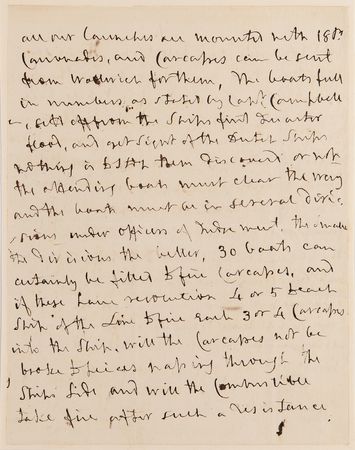 all our Launches are mounted with 18 pr
Carronades, and Carcasses can be sent
from Woolwich for them, The boats full
in numbers, as stated by Capt. Campbell
set off from the Ships first quarter
flood, and get sight of the Dutch Ships
nothing is to stop them discovered or not
the attending boats must clear the way
and the boats must be in several divi-
sions under officers of Judgement, the smaller
the divisions the better, 30 boats can
certainly be fitted to fire Carcasses, and
if these have resolution 4 or 5 to each
Ship of the Line to fire each 3 or 4 Carcasses
into the Ship, will the Carcasses not be
broke to peices passing through the
Ships Side and will the Combustibles
take fire after such a resistance